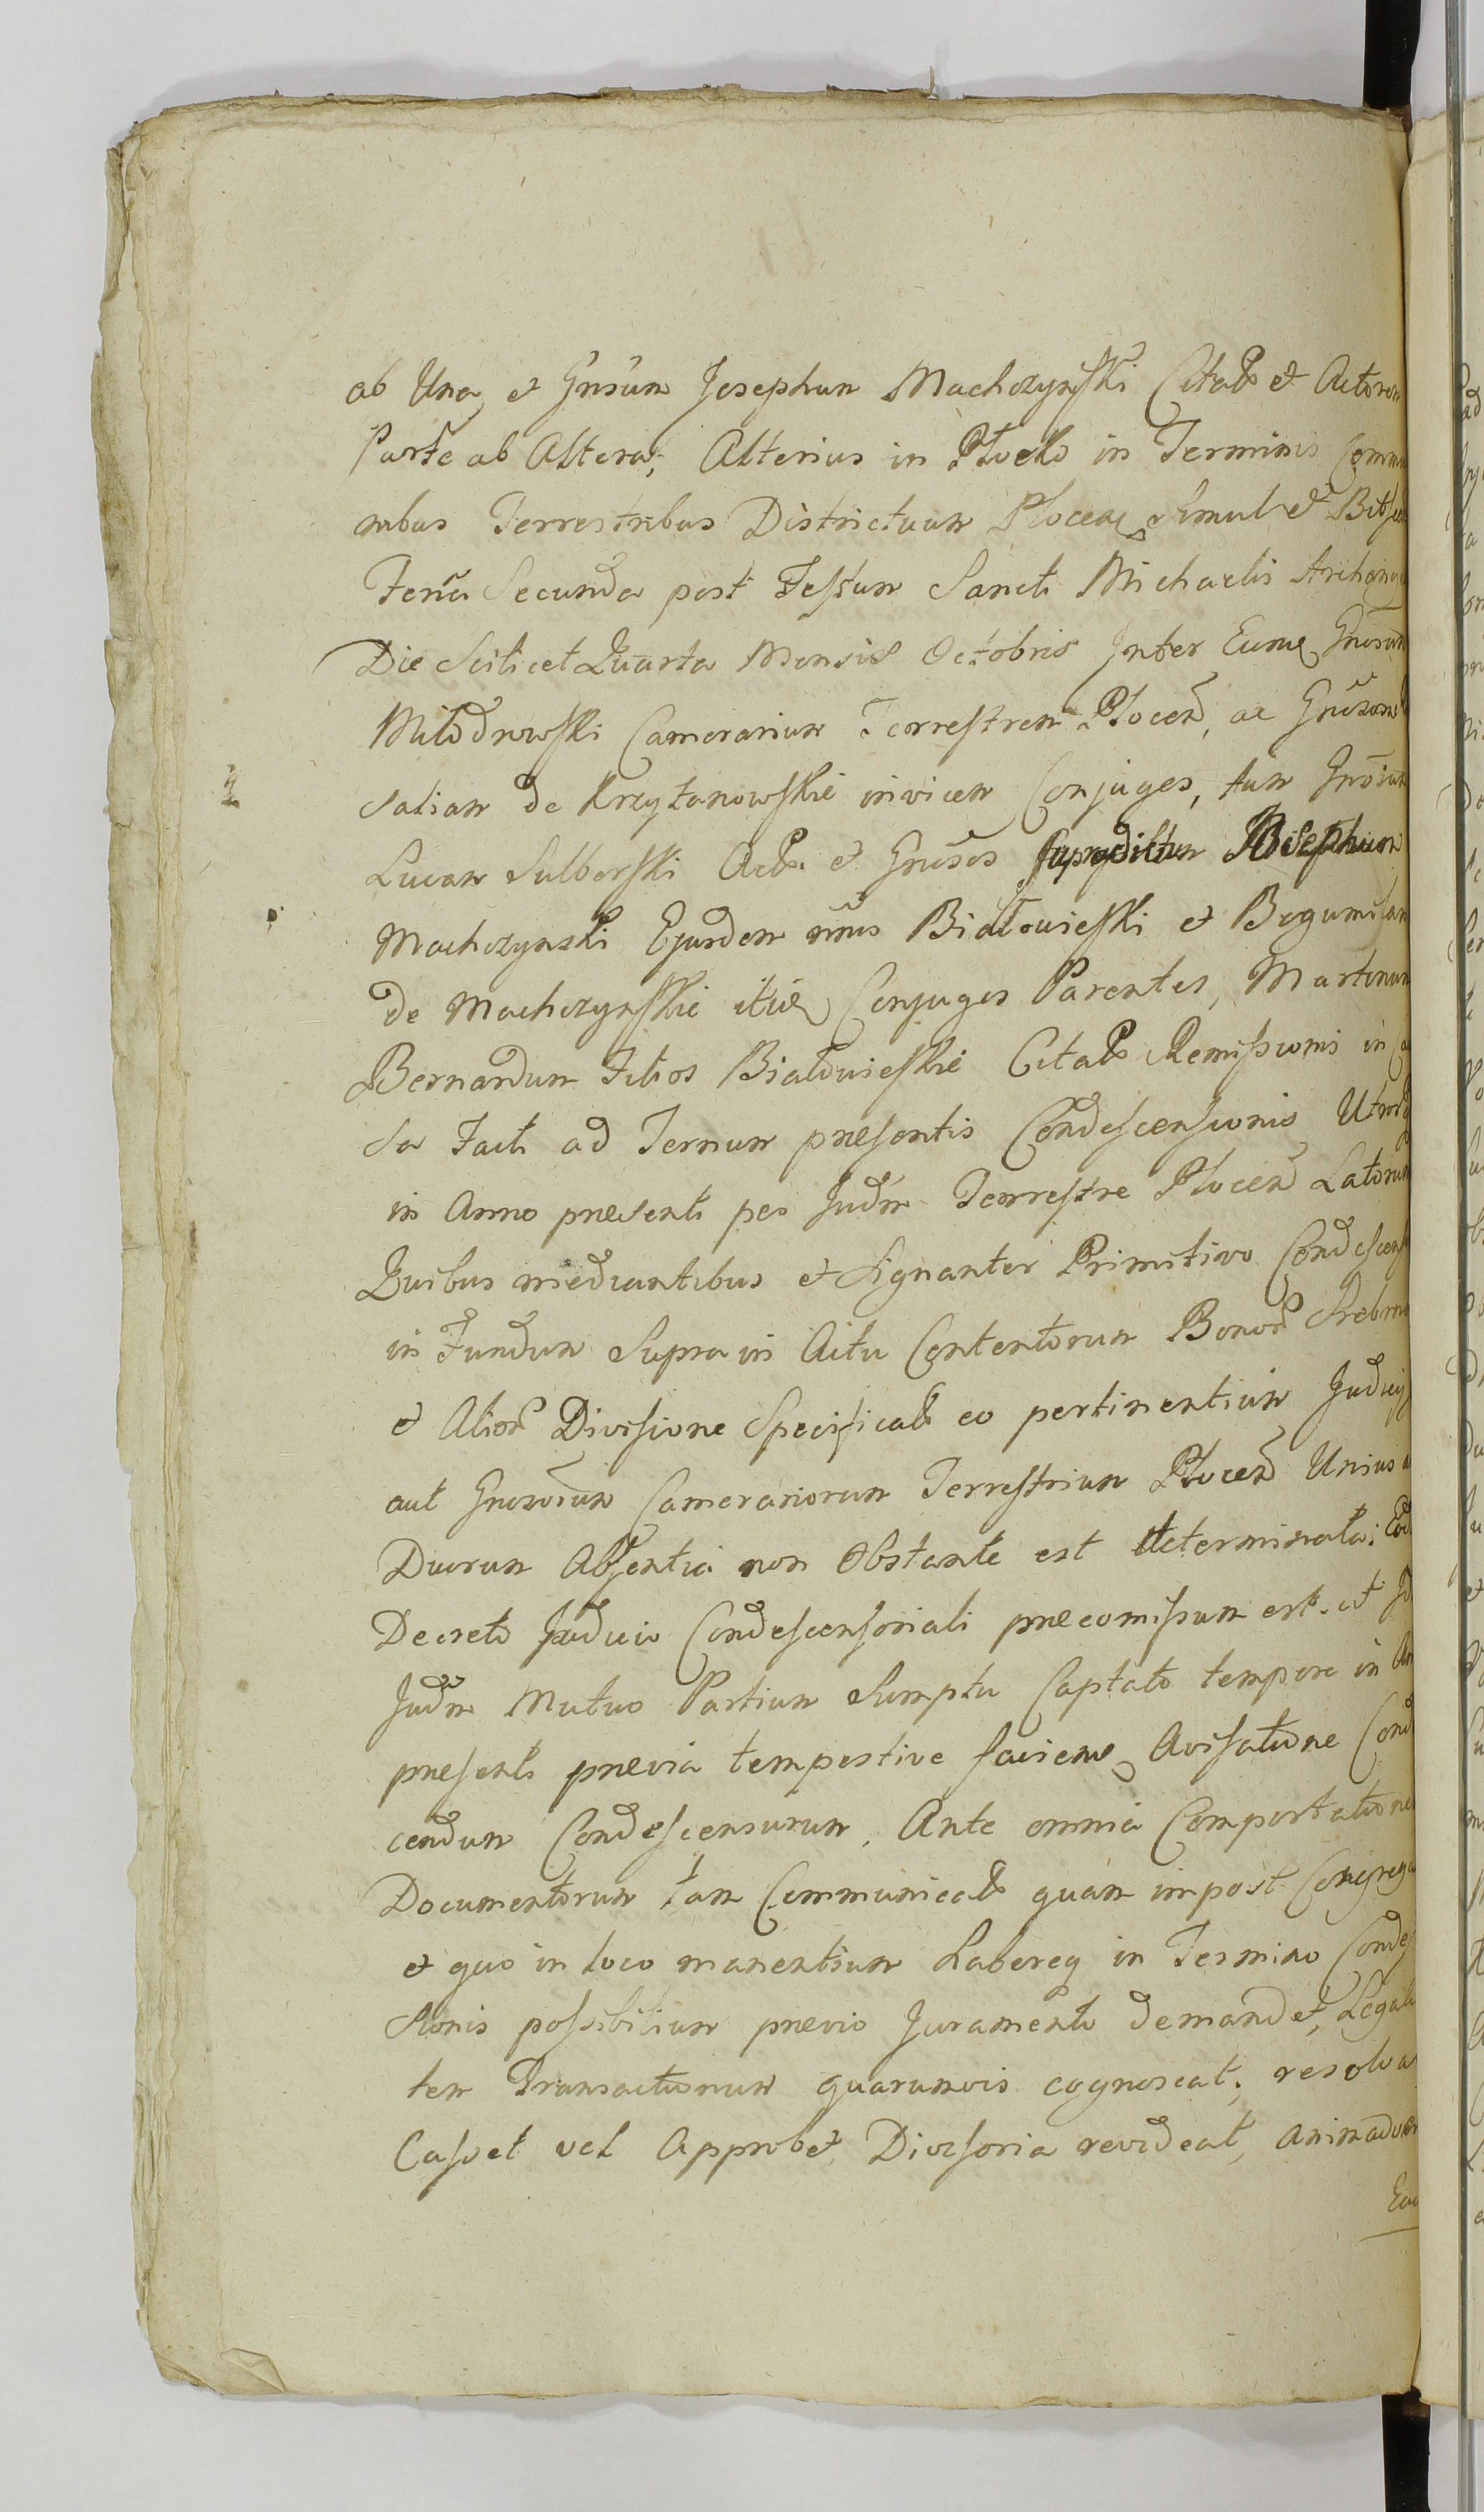 ab Una, et Gnsum Josephum Machczyński Citat et Actorem
Parte ab Altera, Alterius in Plocko in Terminis Commu
nibus Terrestribus Districtuum Plocen simul et Bilscen
Feria Secunda post Festum Sancti Michaelis Archang
Die Scilicet Quarta Mensis Octobris Inter Eume Gnosum
Miłodrowski Camerarium Terrestrem Plocen, ac Gnosam
saliam de Krzyżanowskie invicem Conjuges, tum Gnosum
Lucam Sulborski Act. et Gnosos supradictum Josephum
Machczynski Ejusdem nrus Białowieski et Bogumilam
de Machczynskie itid Conjuges Parentes, Martinum
Bernardum Filios Białowieskie Citat Remissionis in Ca
sa Facti ad Ternum presentis Condescensionis Utriq
in Anno presenti per Judm Terrestre Plocen Latorum
Quibus mediantibus et Signanter Primitivo Condescens
in Fundum Supra in Actu Contentorum Bonor Srebrna
et Alior Divisione Specificat eo pertinentium Judicij
aut Gnosorum Camerariorum Terrestrium Plocen Unius a
Duorum Absentia non Obstante est determinata; Eod
Decreto Judicio Condescensoriali precomissum est. ut Jd
Judm Mutuo Partium Sumptu Captato tempore in An
presenti previa tempestive faciem Avisatione Cond
cendum Condescensurum, Ante omnia Comportatione
Documentorum tam Communicat quam impost Congrega
et quo in loco manentium Haberiq in Termino Condes
sionis possibilium previo Juramento demandet, Legali
tem Transactionum quarumvis cognoscat, resolva
Casset vel Approbet, Divisoria revideat, animadver
Ea